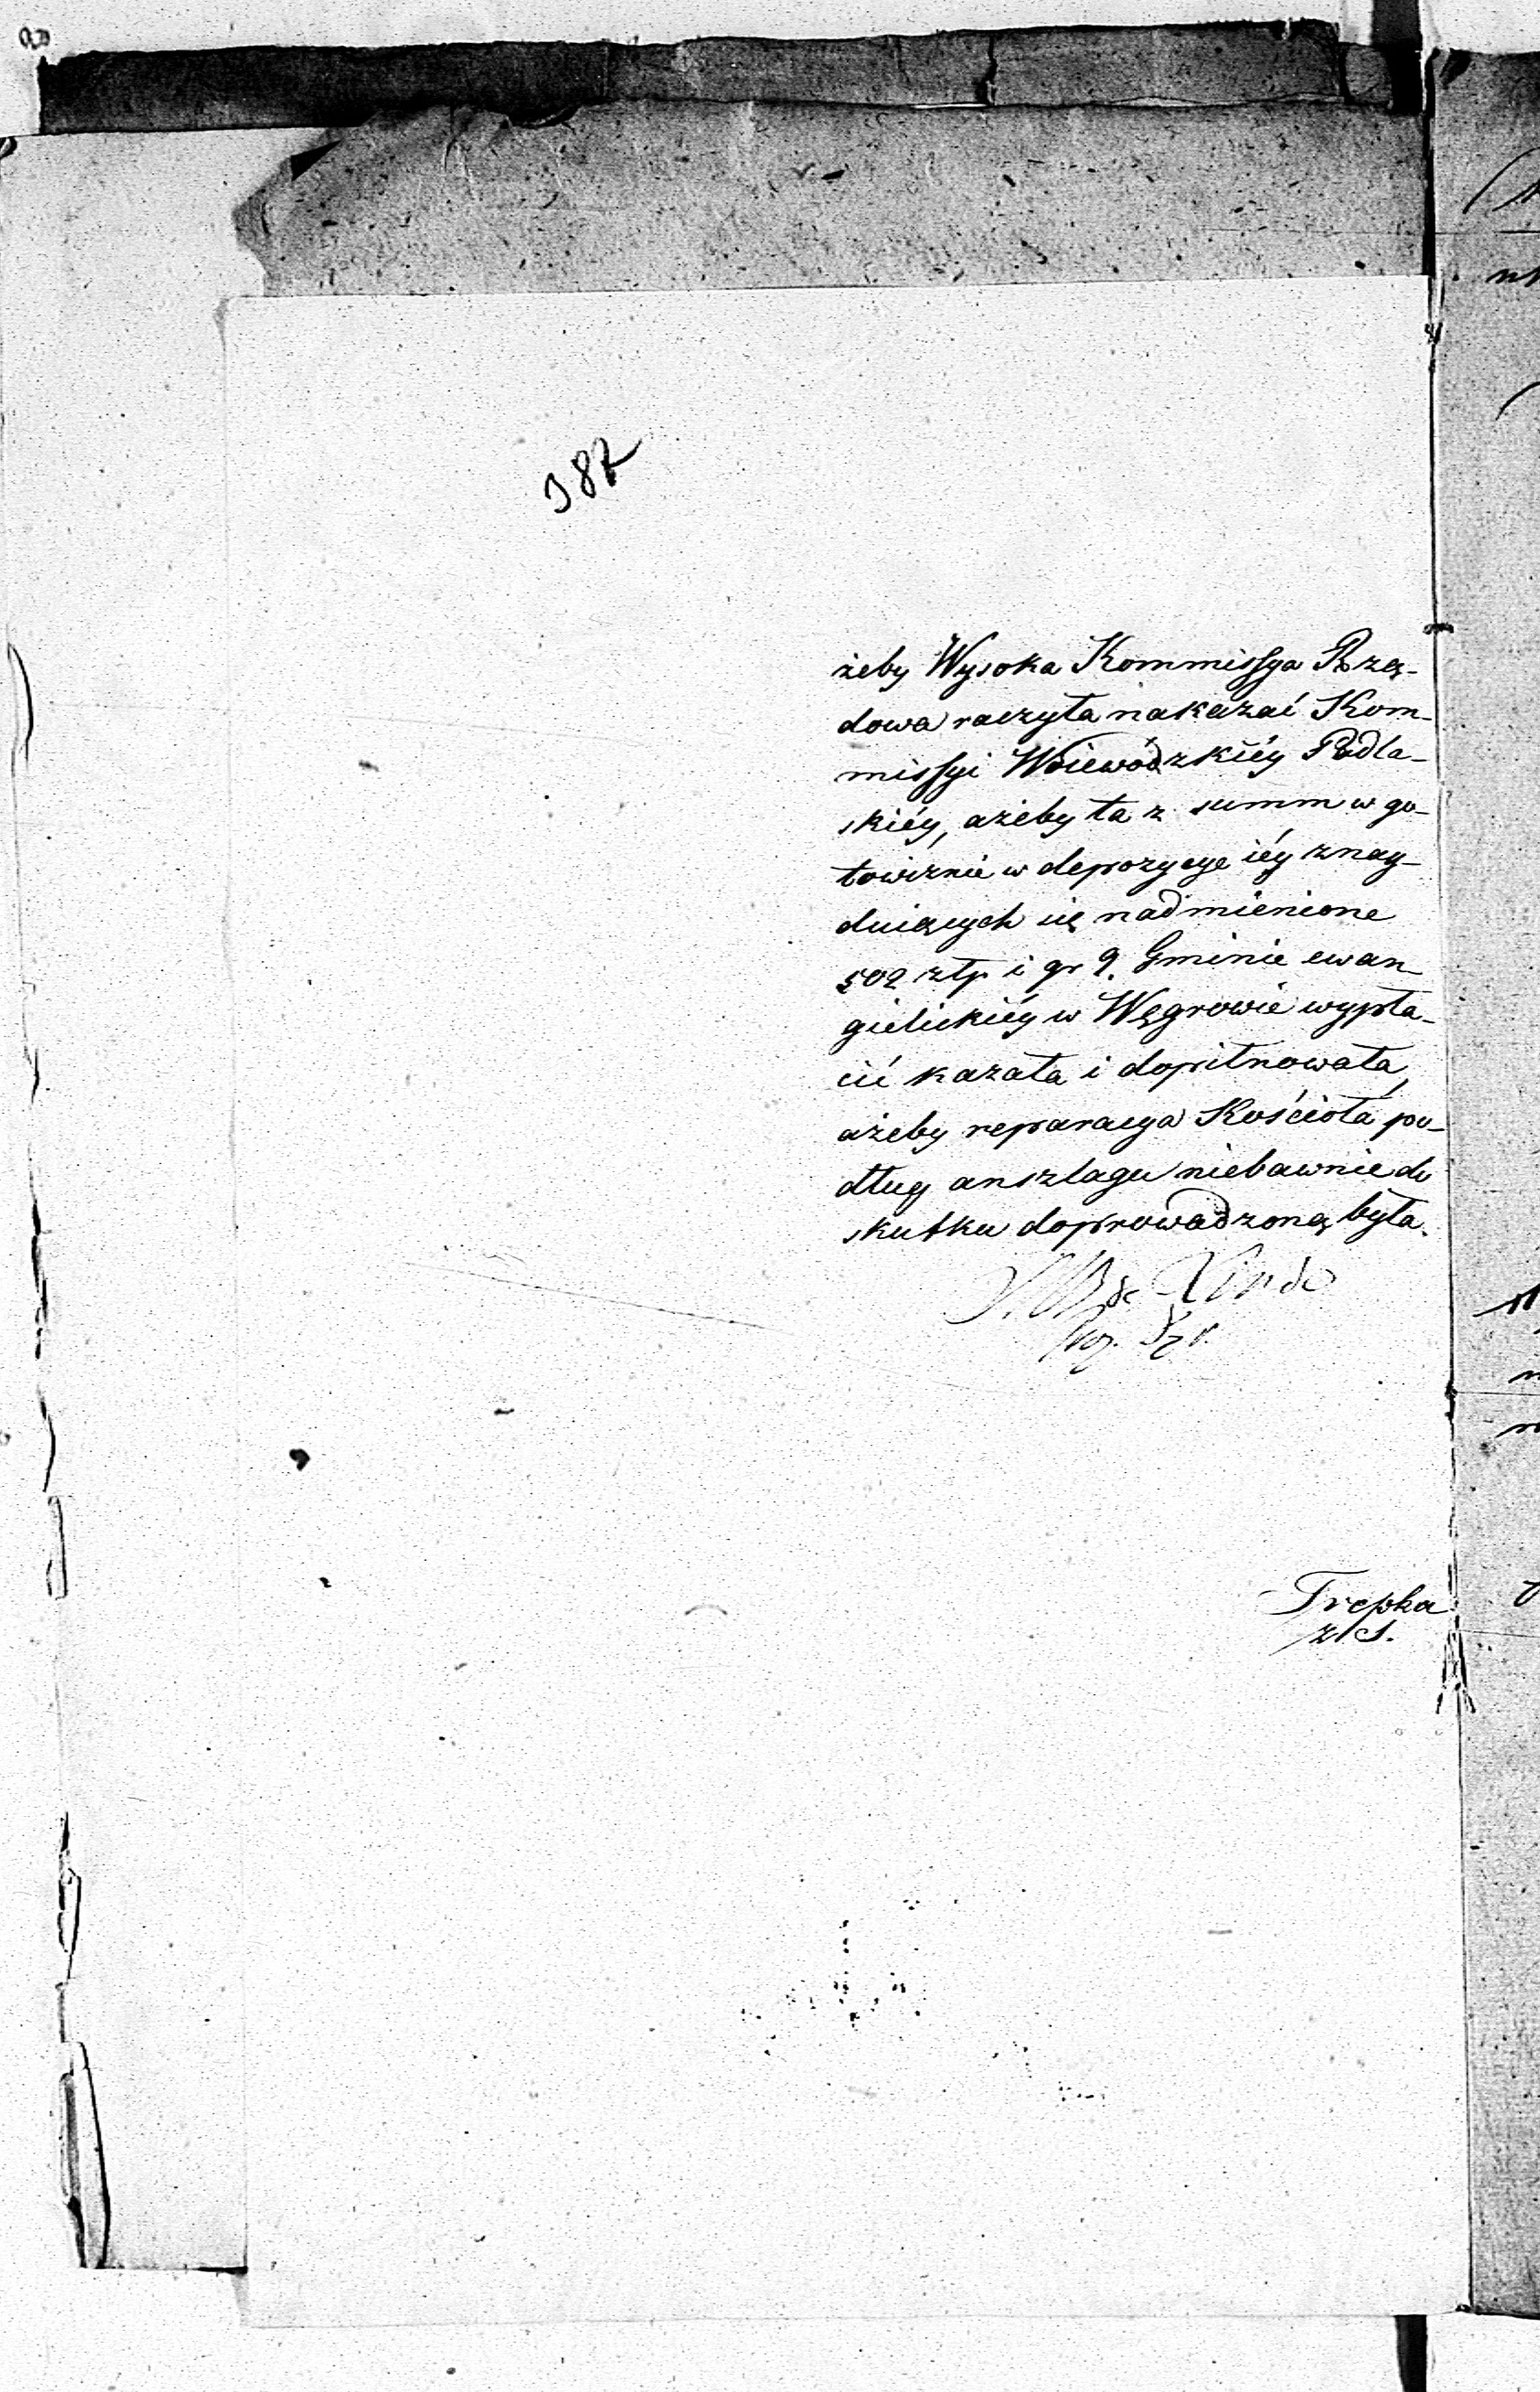 387
żeby Wysoka Kommissya Rzą-
dowa raczyła nakazać Kom-
missyi Woiewódzkiéy Podla-
skiéy, ażeby ta z summ w go-
towiznie w depozycye iéy znay-
duiących się nadmienione
502 złp. i gr 9. Gminie ewan-
gielickiéy w Węgrowie wypła-
cić kazała i dopilnowała,
ażeby reparacya Kościoła po-
dług anszlagu niebawnie do
skutku doprowadzoną była.
Linde
Trepka